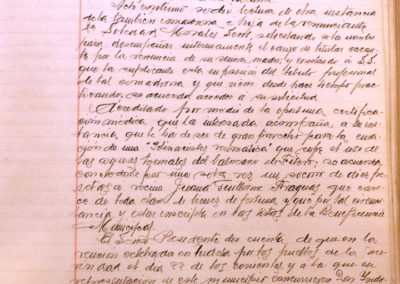 Acto continuo se dió lectura de otra instancia
de la también comadrona e hija de la renunciante
Dª Soledad Morales Sont, solicitando se la nombre
para desempeñar interinamente el cargo de titular vacante
por la renuncia de su señora madre, y constando á S.S.
que la suplicante está en posesión del título profesional
de tal comadrona y que viene desde hace tiempo practicando,
se acuerda acceder a su solicitud.
Acreditado por medio de la oportuna certificación
médica que la interesada acompaña, a su instancia,
que le ha de ser de gran provecho para la curación
de una reumática que sufre el uso de
las aguas termales del balneario de Fitero, se acuerda
concederle por una sola vez un socorro de diez pesetas
a vecina Juana Guillomía Fraguas que carece
de toda clase de bienes de fortuna, y que por tal circunstancia
y estar inscripta en las listas de la Beneficencia
Municipal.
El Señor Presidente dió cuenta de que en la
reunión celebrada en Tudela por los pueblos de la merindad
el día 22 de los corrientes, y a la que en
representación de este municipio concurrieron Don